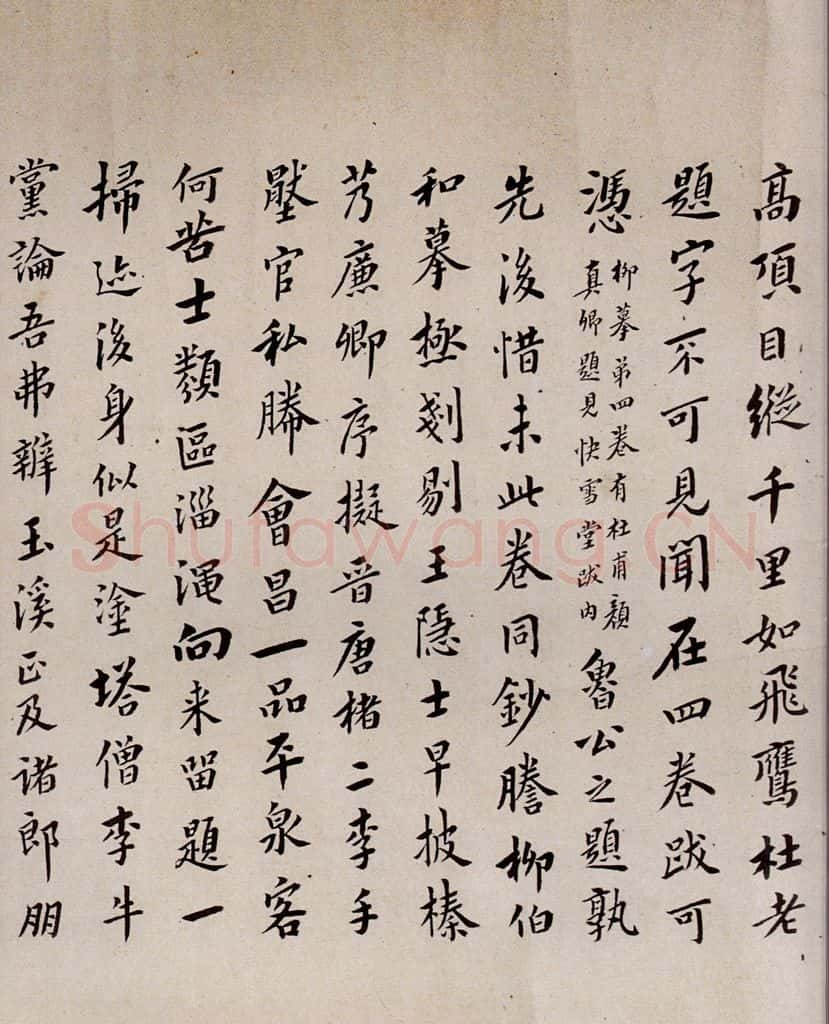 高頂目縱千里如飛鷹杜老
題字不可見聞在四卷跋可
憑柳摹第四卷有杜甫顏
真卿題見快雪堂跋内
魯公之題孰
先後惜未此卷同鈔謄柳伯
和摹極剗剔王隱士早披榛
芳廉卿序擬晋唐楮二李手
壓官私勝會昌一品平泉客
何苦士類區淄渑向来留題一
掃迹後身似是塗塔僧李牛
黨論吾弗辨玉溪正及諸郎朋
Shufawang.CN